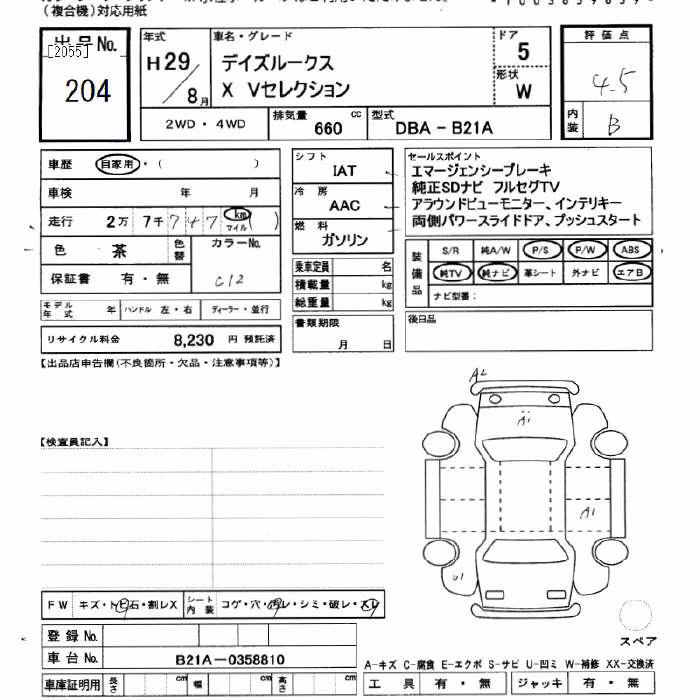 （複合機）対応用紙
出品No.
[2055]
204
年式 H29／8月
車名・グレード
デイズルークス
X Vセレクション
ドア 5
形状 W
評価点
4.5
内装 B
2WD・4WD
排気量 660 cc
型式 DBA－B21A
車歴 自家用・（ ）
車検 年 月
走行 2万 7千 7 4 7 km マイル ( )
色 茶
色替
カラーNo.
C12
保証書 有・無
モデル年式 年
ハンドル 左・右
ディーラー・並行
リサイクル料金 8,230 円 預託済
シフト
IAT
冷房
AAC
燃料
ガソリン
乗車定員 名
積載量 kg
総重量 kg
書類期限
月 日
セールスポイント
エマージェンシーブレーキ
純正SDナビ フルセグTV
アラウンドビューモニター、インテリキー
両側パワースライドドア、プッシュスタート
装備品
S/R 純A/W P/S P/W ABS
純TV 純ナビ 革シート 外ナビ エアB
ナビ型番：
後日品
【出品店申告欄（不良箇所・欠品・注意事項等）】
【検査員記入】
A2
A1
A1
U1
スペア
FW キズ・トビ石・割レX
シート内装 コゲ・穴・汚レ・シミ・破レ・スレ
登録No.
車台No. B21A－0358810
車庫証明用 長さ cm 幅 cm 高さ cm
A－キズ C－腐食 E－エクボ S－サビ U－凹ミ W－補修 XX－交換済
工具 有・無 ジャッキ 有・無